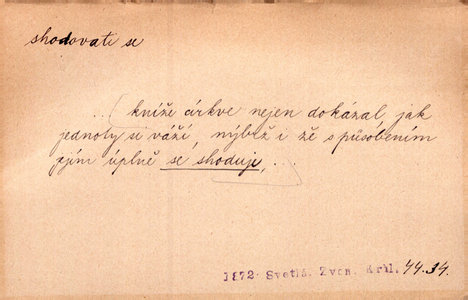 shodovati se
...(kníže církve nejen dokázal, jak
jednoty si váží, nýbrž i že s působením
jejím úplně se shoduje,...
1872 Světlá. Zvon. Král. 44.34.